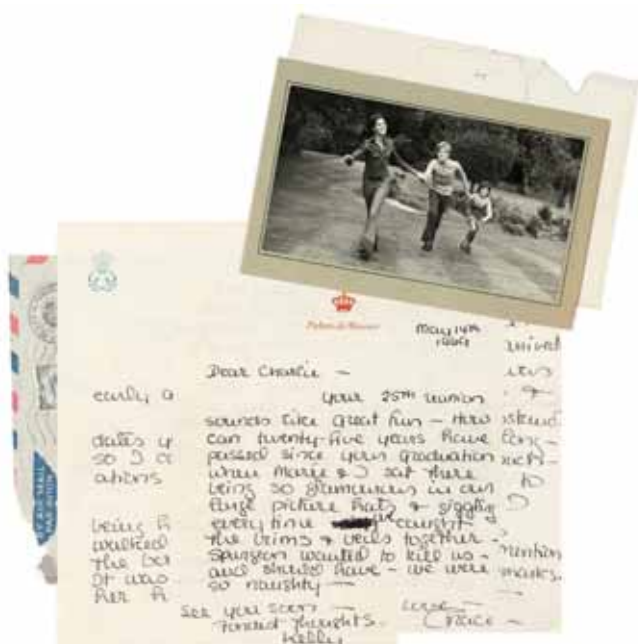 Palais de Monaco
May 14th
Dear Charlie –
your 25th reunion
sounds like great fun – How
can twenty-five years have
passed since your graduation
when Marie & I sat there
being so glamourous in our
large picture hats & giggling
every time we caught
the brims & veils together –
Spurgeon wanted to kill us –
and should have – we were
so naughty –
love –
Grace –
early, a
dates y
so I
ations
being h
walked
the
It was
her h
See you soon –
Fondest thoughts.
Kelly
to
I
mention
PAR AVION